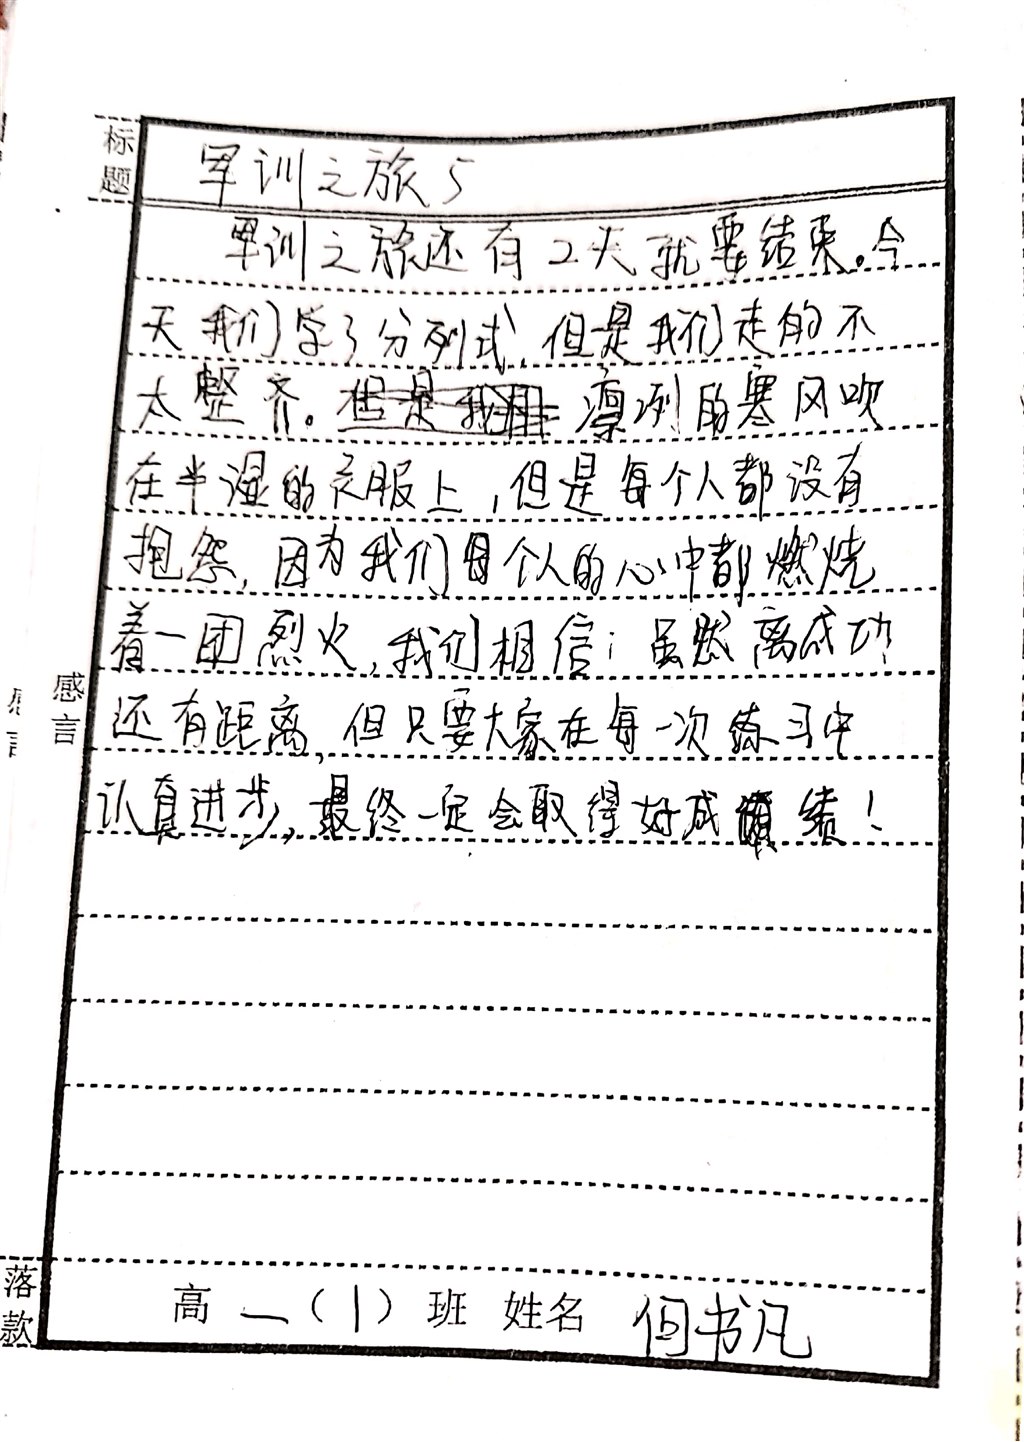 标题
军训之旅5
军训之旅还有2天就要结束。今
天我们学了分列式,但是我们走的不
太整齐。凛冽的寒风吹
在半湿的衣服上,但是每个人都没有
抱怨,因为我们每个人的心中都燃烧
着一团烈火,我们相信:虽然离成功
还有距离,但只要大家在每一次练习中
认真进步,最终一定会取得好成绩!
感言
落款
高一(1)班 姓名 何书凡